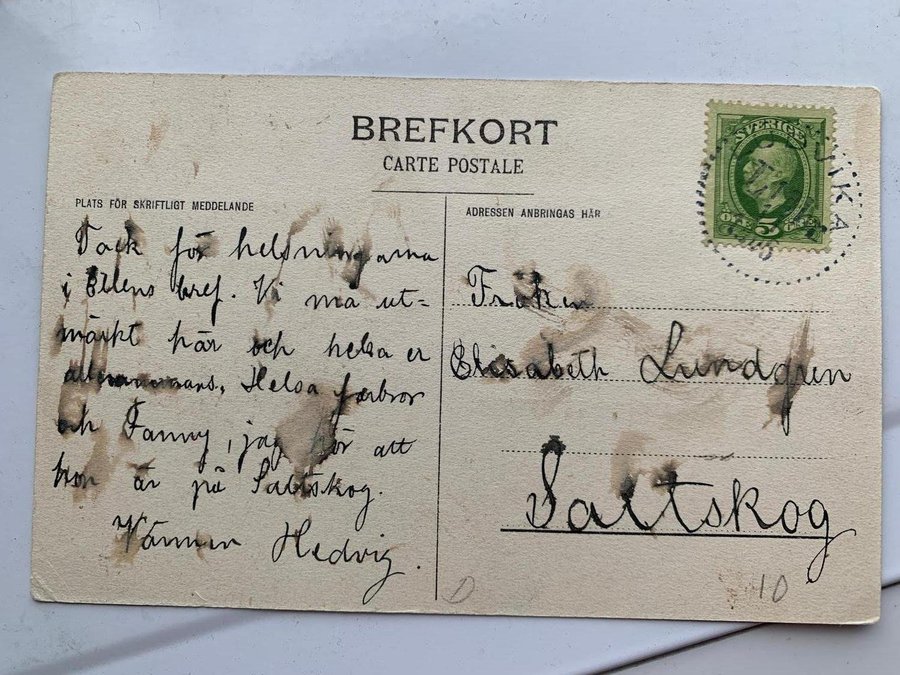 BREFKORT
CARTE POSTALE
PLATS FÖR SKRIFTLIGT MEDDELANDE
Tack för helsningarna
i Ellens bref. Vi må ut-
märkt här och helsa er
allesammans. Helsa farbror
och Fanny, jag hör att
hon är på Saltskog.
Vännen Hedvig.
ADRESSEN ANBRINGAS HÄR
Fröken
Elisabeth Lundgren
Saltskog
SVERIGE
5
D
10